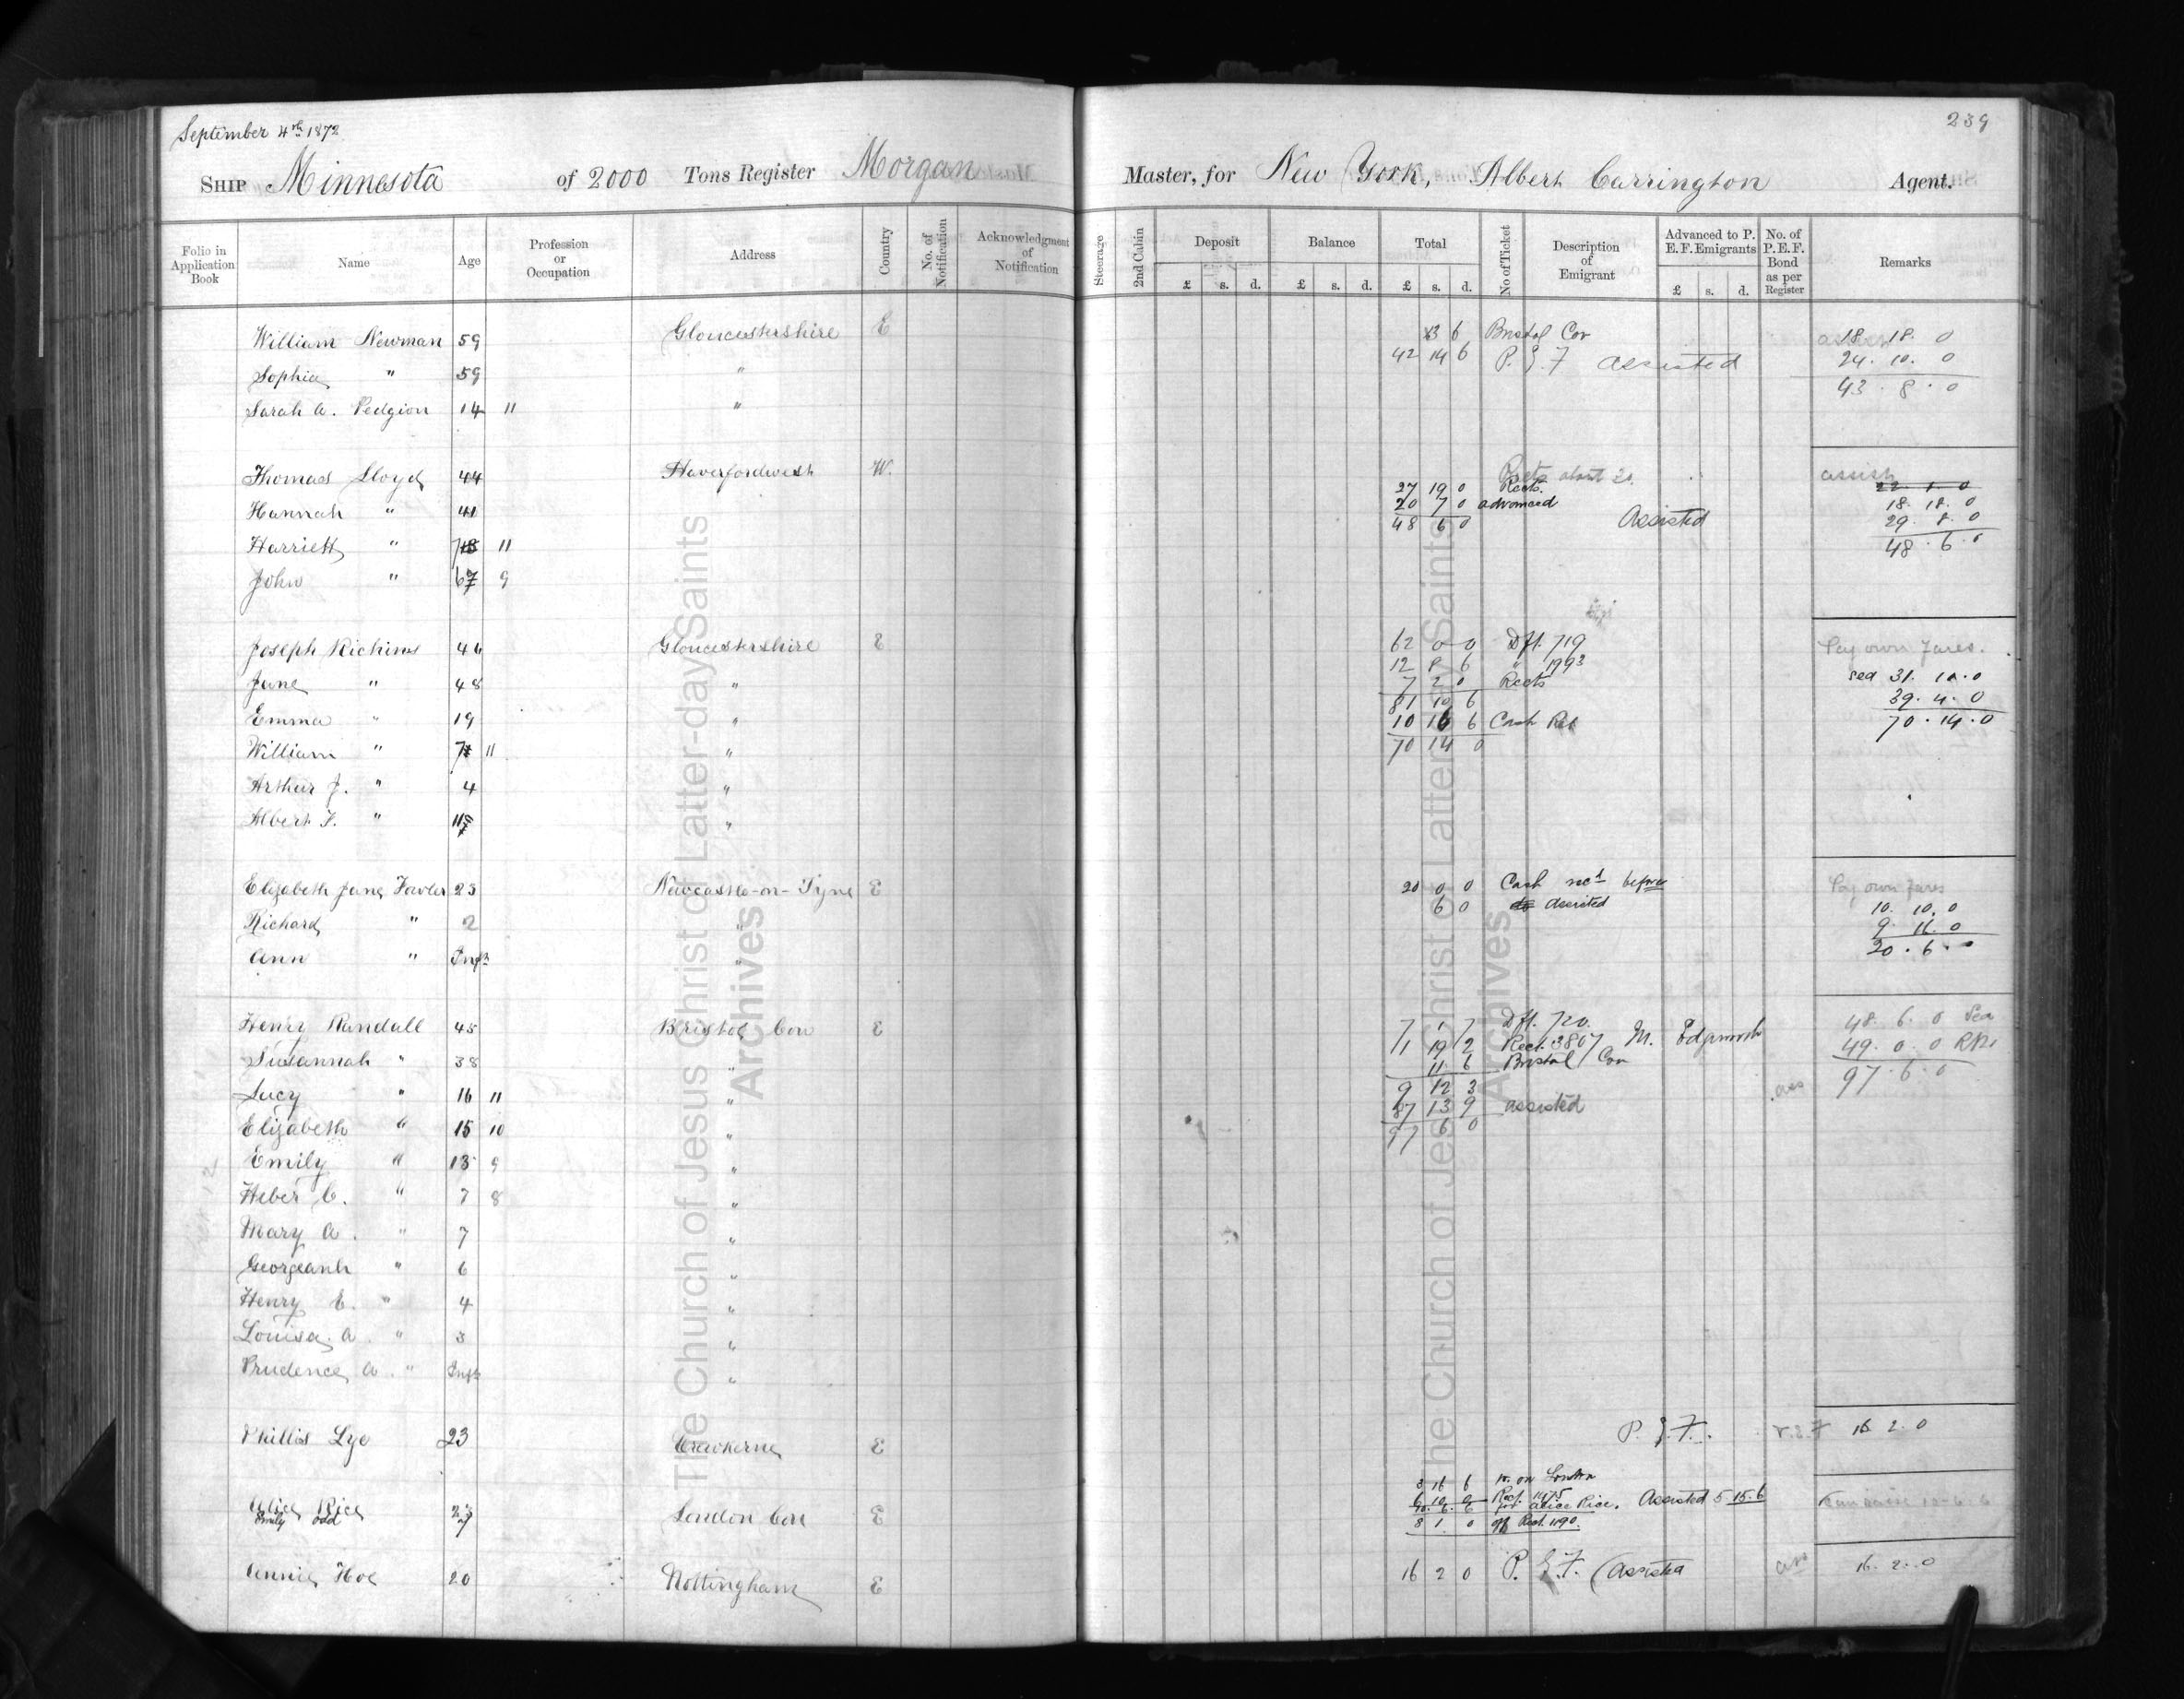 239
September 4th 1872
SHIP Minnesota of 2000 Tons Register Morgan Master, for New York, Albert Carrington Agent.
Folio in Application Book Name Age Profession or Occupation Address Country No. of Notification Acknowledgment of Notification Steerage 2nd Cabin Deposit Balance Total No of Ticket Description of Emigrant Advanced to P. E. F. Emigrants No. of P.E.F. Bond as per Register Remarks
£ s. d. £ s. d. £ s. d. £ s. d.
William Newman 59 Gloucestershire E 13 6 Bristol Con 18. 18. 0
42 14 6 P. E. F Assisted 24. 10. 0
Sophia " 59 " 43. 8. 0
Sarah A. Pedgion 14 11 "
Thomas Lloyd 44 Haverfordwest W. about 20. assist
27 19 0 Rects. 22 1 0
Hannah " 41 20 7 0 advanced 18. 18. 0
48 6 0 Assisted 29. 8. 0
Harriett " 11 48. 6. 0
John " 9
Joseph Richins 46 Gloucestershire E 62 0 0 Dft. 719 Pay own fares.
12 8 6 " 1993
Jane " 48 " 7 2 0 Rects sea 31. 10. 0
81 10 6 39. 4. 0
Emma " 19 " 10 16 6 Cash Ret 70. 14. 0
William " 7 11 " 70 14 0
Arthur J. " 4 "
Albert F. " "
Elizabeth Jane Fowler 23 Newcastle-on-Tyne E 20 0 0 Cash recd before Pay own fares
6 0 do assisted 10. 10. 0
Richard " 2 " 9. 16. 0
Ann " Inft " 20. 6. 0
Henry Randall 45 Bristol Con E 7 1 7 Dft. 720. 48. 6. 0 Sea
1 19 2 Rect. 3807 M. Edgworth 49. 0. 0
Susannah " 38 " 11 6 Bristol Con 97. 6. 0
Lucy " 16 11 " 9 12 3 ass
87 13 9 assisted
Elizabeth " 15 10 " 97 6 0
Emily " 13 9 "
Heber C. " 7 8 "
Mary A. " 7 "
Georgeanh " 6 "
Henry E. " 4 "
Louisa A. " 3 "
Prudence A. " Inft "
Phillis Lye 23 Crewkerne E P. E. F. P.E.F 16. 2. 0
3 16 6 London
Alice Rice London Con E Rect. 1175
Emily odd 7 for Alice Rice. Assisted 5 15. 6
8 1 0 Rect. 1190.
Annie Hoe 20 Nottingham E 16 2 0 P. E. F. (Assisted ass 16. 2. 0
The Church of Jesus Christ of Latter-day Saints
Archives
The Church of Jesus Christ of Latter-day Saints
Archives